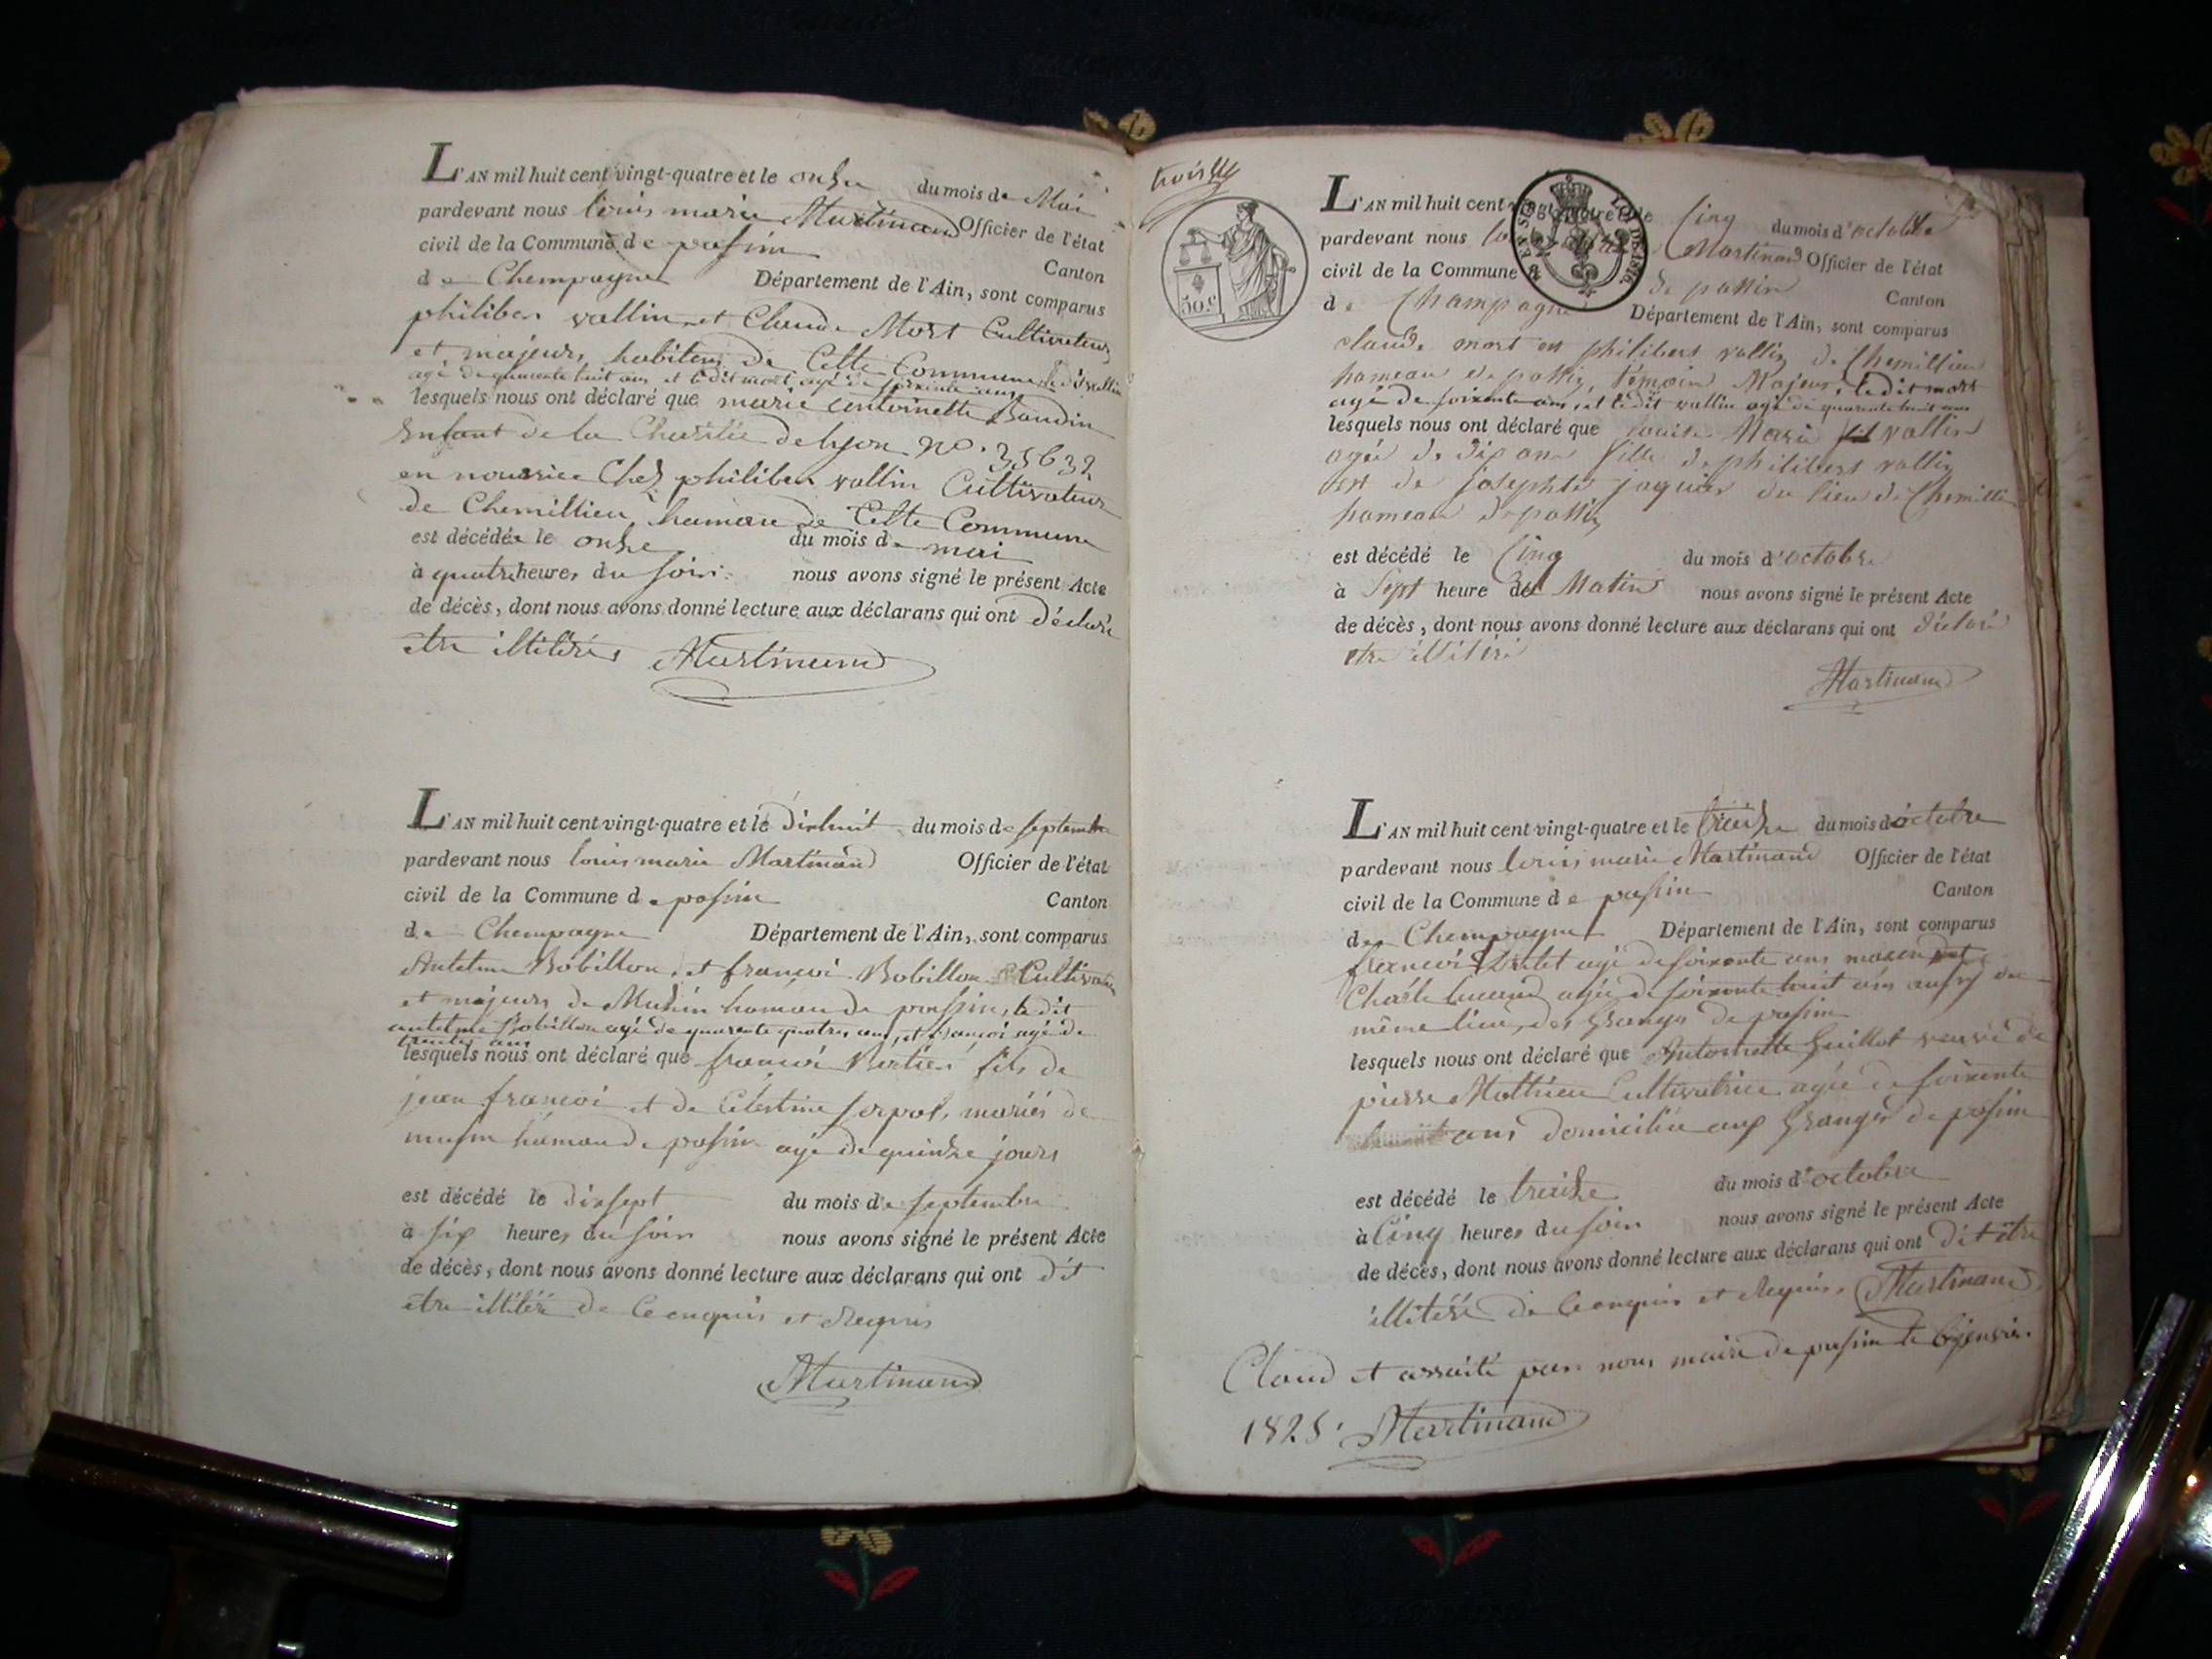 L'AN mil huit cent vingt-quatre et le onze du mois de Mai
pardevant nous louis marie Martinand Officier de l'état
civil de la Commune de pasin Canton
de Champagne Département de l'Ain, sont comparus
philiber vallin et Claude Mort Cultivateurs
et majeurs, habitens de Cette Commune le dit vallin
agé de quarente huit ans et ledit mort agé de soixente ans
lesquels nous ont déclaré que marie antoinette Baudin
Enfant de la Charitée de lyon no. 35632
en nourrice Chez philiber vallin Cultivateur
de Chemillieu hamau de Cette Commune
est décédée le onze du mois de mai
à quatre heures du soir nous avons signé le présent Acte
de décès, dont nous avons donné lecture aux déclarans qui ont déclaré
etre illitérés Martinand
L'AN mil huit cent vingt-quatre et le dixhuit du mois de septembre
pardevant nous louis marie Martinand Officier de l'état
civil de la Commune de pasin Canton
de Champagne Département de l'Ain, sont comparus
Antelme Bobillon, et françoi Bobillon Cultivateur
et majeurs de Musin hamau de passin, le dit
antelme Bobillon agé de quarente quatre ans, et françoi agé de
trente ans
lesquels nous ont déclaré que françoi Bertier fils de
jean françoi et de Célestine serpol, mariés de
musin hamau de pasin agé de quinze jours
est décédé le dixsept du mois de septembre
à six heures du soir nous avons signé le présent Acte
de décès, dont nous avons donné lecture aux déclarans qui ont dit
etre illitéré de Ce enquis et Requis
Martinand
trois
50 c.
L'AN mil huit cent vingt-quatre et le Cinq du mois d'octobre
pardevant nous Martinand Officier de l'état
civil de la Commune de passin Canton
de Champagne Département de l'Ain, sont comparus
claude mort et philibert vallin de Chemillieu
hameau de passin, témoin Majeurs, le dit mort
agé de soixente ans, et le dit vallin agé de quarente huit ans
lesquels nous ont déclaré que louise Marie vallin
agée de dix ans fille de philibert vallin
et de josephte jaquier du lieu de Chemillieu
hameau de passin
est décédé le Cinq du mois d'octobre
à Sept heure du Matin nous avons signé le présent Acte
de décès, dont nous avons donné lecture aux déclarans qui ont déclaré
etre illitéré
Martinand
L'AN mil huit cent vingt-quatre et le treize du mois d'octobre
pardevant nous louis marie Martinand Officier de l'état
civil de la Commune de pasin Canton
de Champagne Département de l'Ain, sont comparus
françoi agé de soixente ans et
Charle agée de soixente huit ans aussy du
même lieu, des Granges de pasin
lesquels nous ont déclaré que Antoinette Guillot veuve de
pierre Mathieu Cultivatrice agée de soixente
ans domiciliée aux Granges de pasin
est décédé le treize du mois d'octobre
à Cinq heures du soir nous avons signé le présent Acte
de décès, dont nous avons donné lecture aux déclarans qui ont dit être
illitéré de Ce enquis et Requis, Martinand
Cloud et arraité par nous maire de pasin le janvier
1825. Martinand